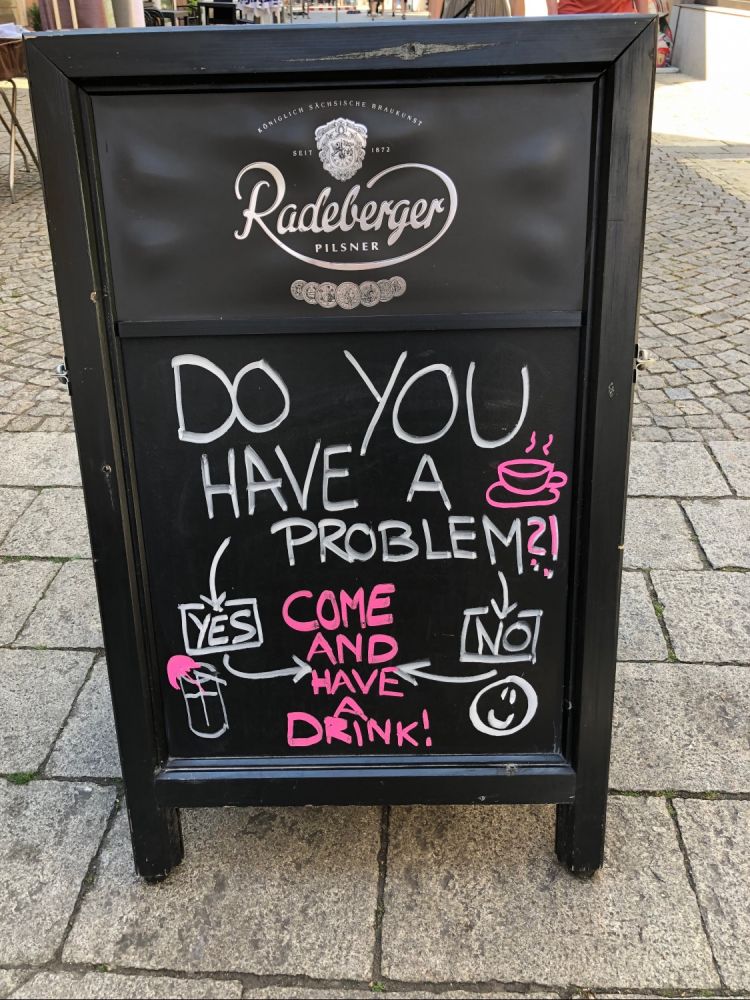 KÖNIGLICH SÄCHSISCHE BRAUKUNST
SEIT 1872
Radeberger
PILSNER
DO YOU
HAVE A
PROBLEM?!
YES
NO
COME
AND
HAVE
A
DRINK!